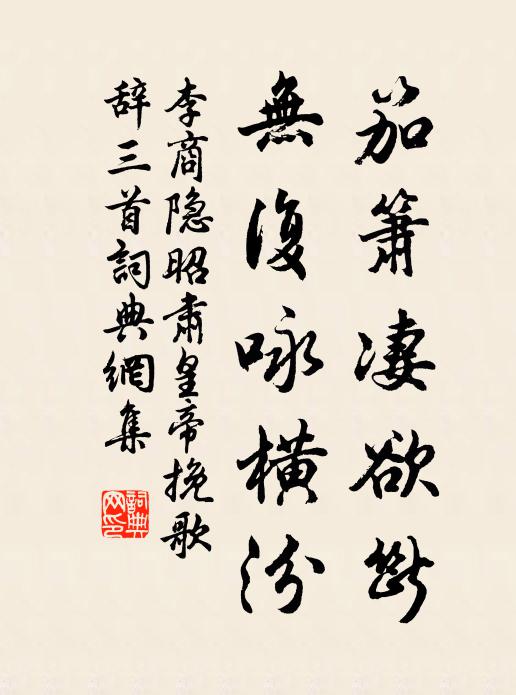 笳簫淒欲斷
無復咏橫汾
李商隐昭肅皇帝挽歌
辞三首詞典網集
詞典网印